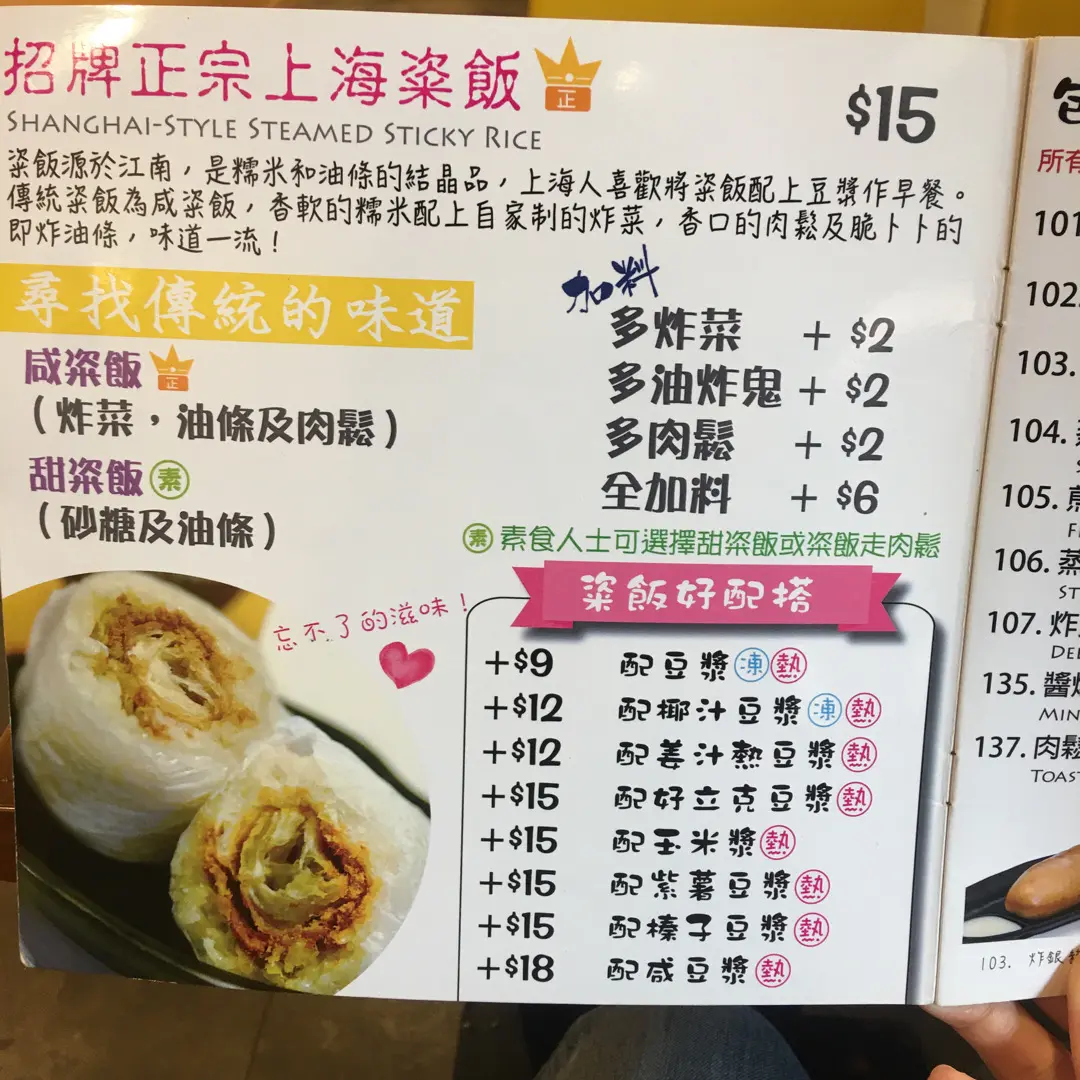 招牌正宗上海粢飯 正
SHANGHAI-STYLE STEAMED STICKY RICE
$15
粢飯源於江南，是糯米和油條的結晶品，上海人喜歡將粢飯配上豆漿作早餐。
傳統粢飯為咸粢飯，香軟的糯米配上自家制的炸菜，香口的肉鬆及脆卜卜的
即炸油條，味道一流！
尋找傳統的味道
咸粢飯 正
（炸菜，油條及肉鬆）
甜粢飯 素
（砂糖及油條）
加料
多炸菜 + $2
多油炸鬼 + $2
多肉鬆 + $2
全加料 + $6
素 素食人士可選擇甜粢飯或粢飯走肉鬆
忘不了的滋味！
粢飯好配搭
+$9 配豆漿 凍 熱
+$12 配椰汁豆漿 凍 熱
+$12 配姜汁熱豆漿 熱
+$15 配好立克豆漿 熱
+$15 配玉米漿 熱
+$15 配紫薯豆漿 熱
+$15 配榛子豆漿 熱
+$18 配咸豆漿 熱
所有
101
102.
103.
104.
105.
106. 蒸
ST
107. 炸
DEE
135. 醬
MIN
137. 肉鬆
TOAST
103. 炸銀